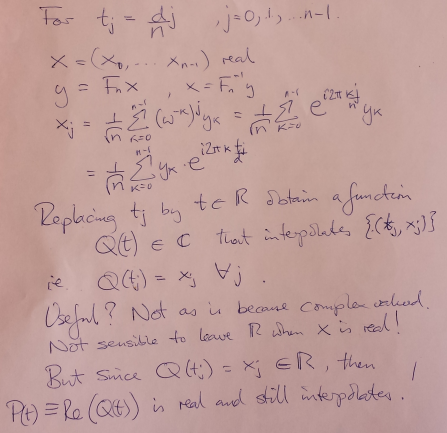 For t_j = d/n j , j=0, 1, ...n-1.
x = (x_0, ... x_{n-1}) real
y = F_n x , x = F_n^{-1} y
x_j = 1/√n Σ_{k=0}^{n-1} (ω^{-k})^j y_k = 1/√n Σ_{k=0}^{n-1} e^{i2πkj/n} y_k
= 1/√n Σ_{k=0}^{n-1} y_k · e^{i2πk t_j/d}
Replacing t_j by t ∈ ℝ obtain a function
Q(t) ∈ ℂ that interpolates {(t_j, x_j)}
ie. Q(t_j) = x_j ∀ j .
Useful? Not as is because complex valued.
Not sensible to leave ℝ when x is real!
But since Q(t_j) = x_j ∈ ℝ, then
P(t) ≡ Re(Q(t)) is real and still interpolates.